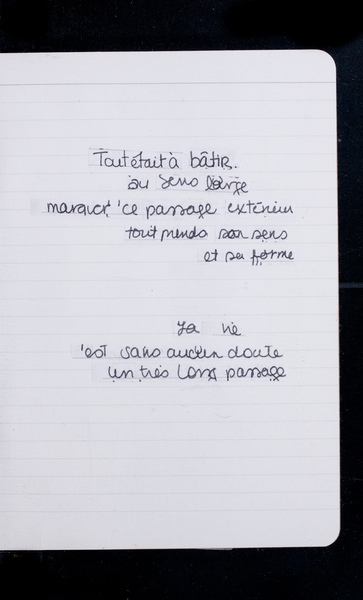 Tout était à bâtir.
au sens large
marquer 'ce passage extérieur
tout prends son sens
et sa forme
La vie
'est sans aucun doute
un très long passage